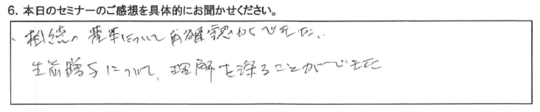 6. 本日のセミナーのご感想を具体的にお聞かせください。
・相続の基本について再確認できた。
生前贈与について、理解を深ることができた